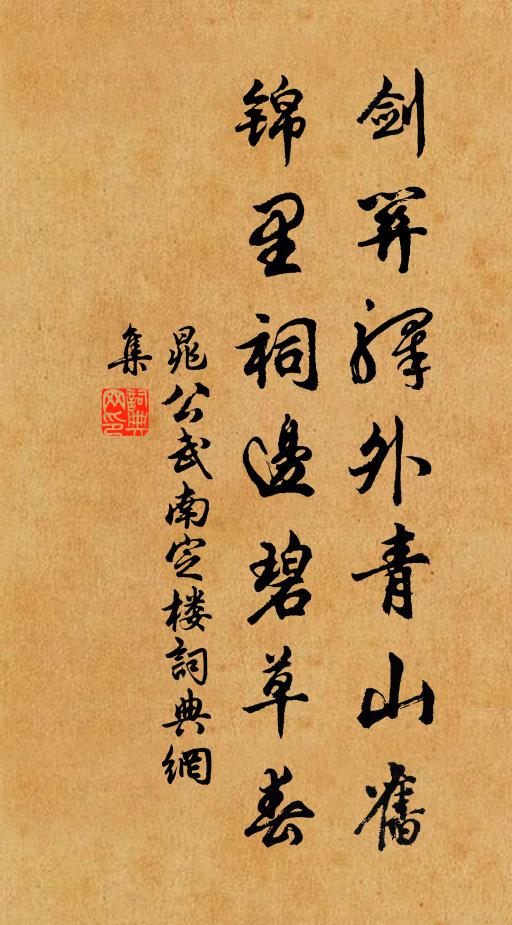 剑关驿外青山旧
锦里祠边碧草春
晁公武南定楼詞典網
集
詞典
网印